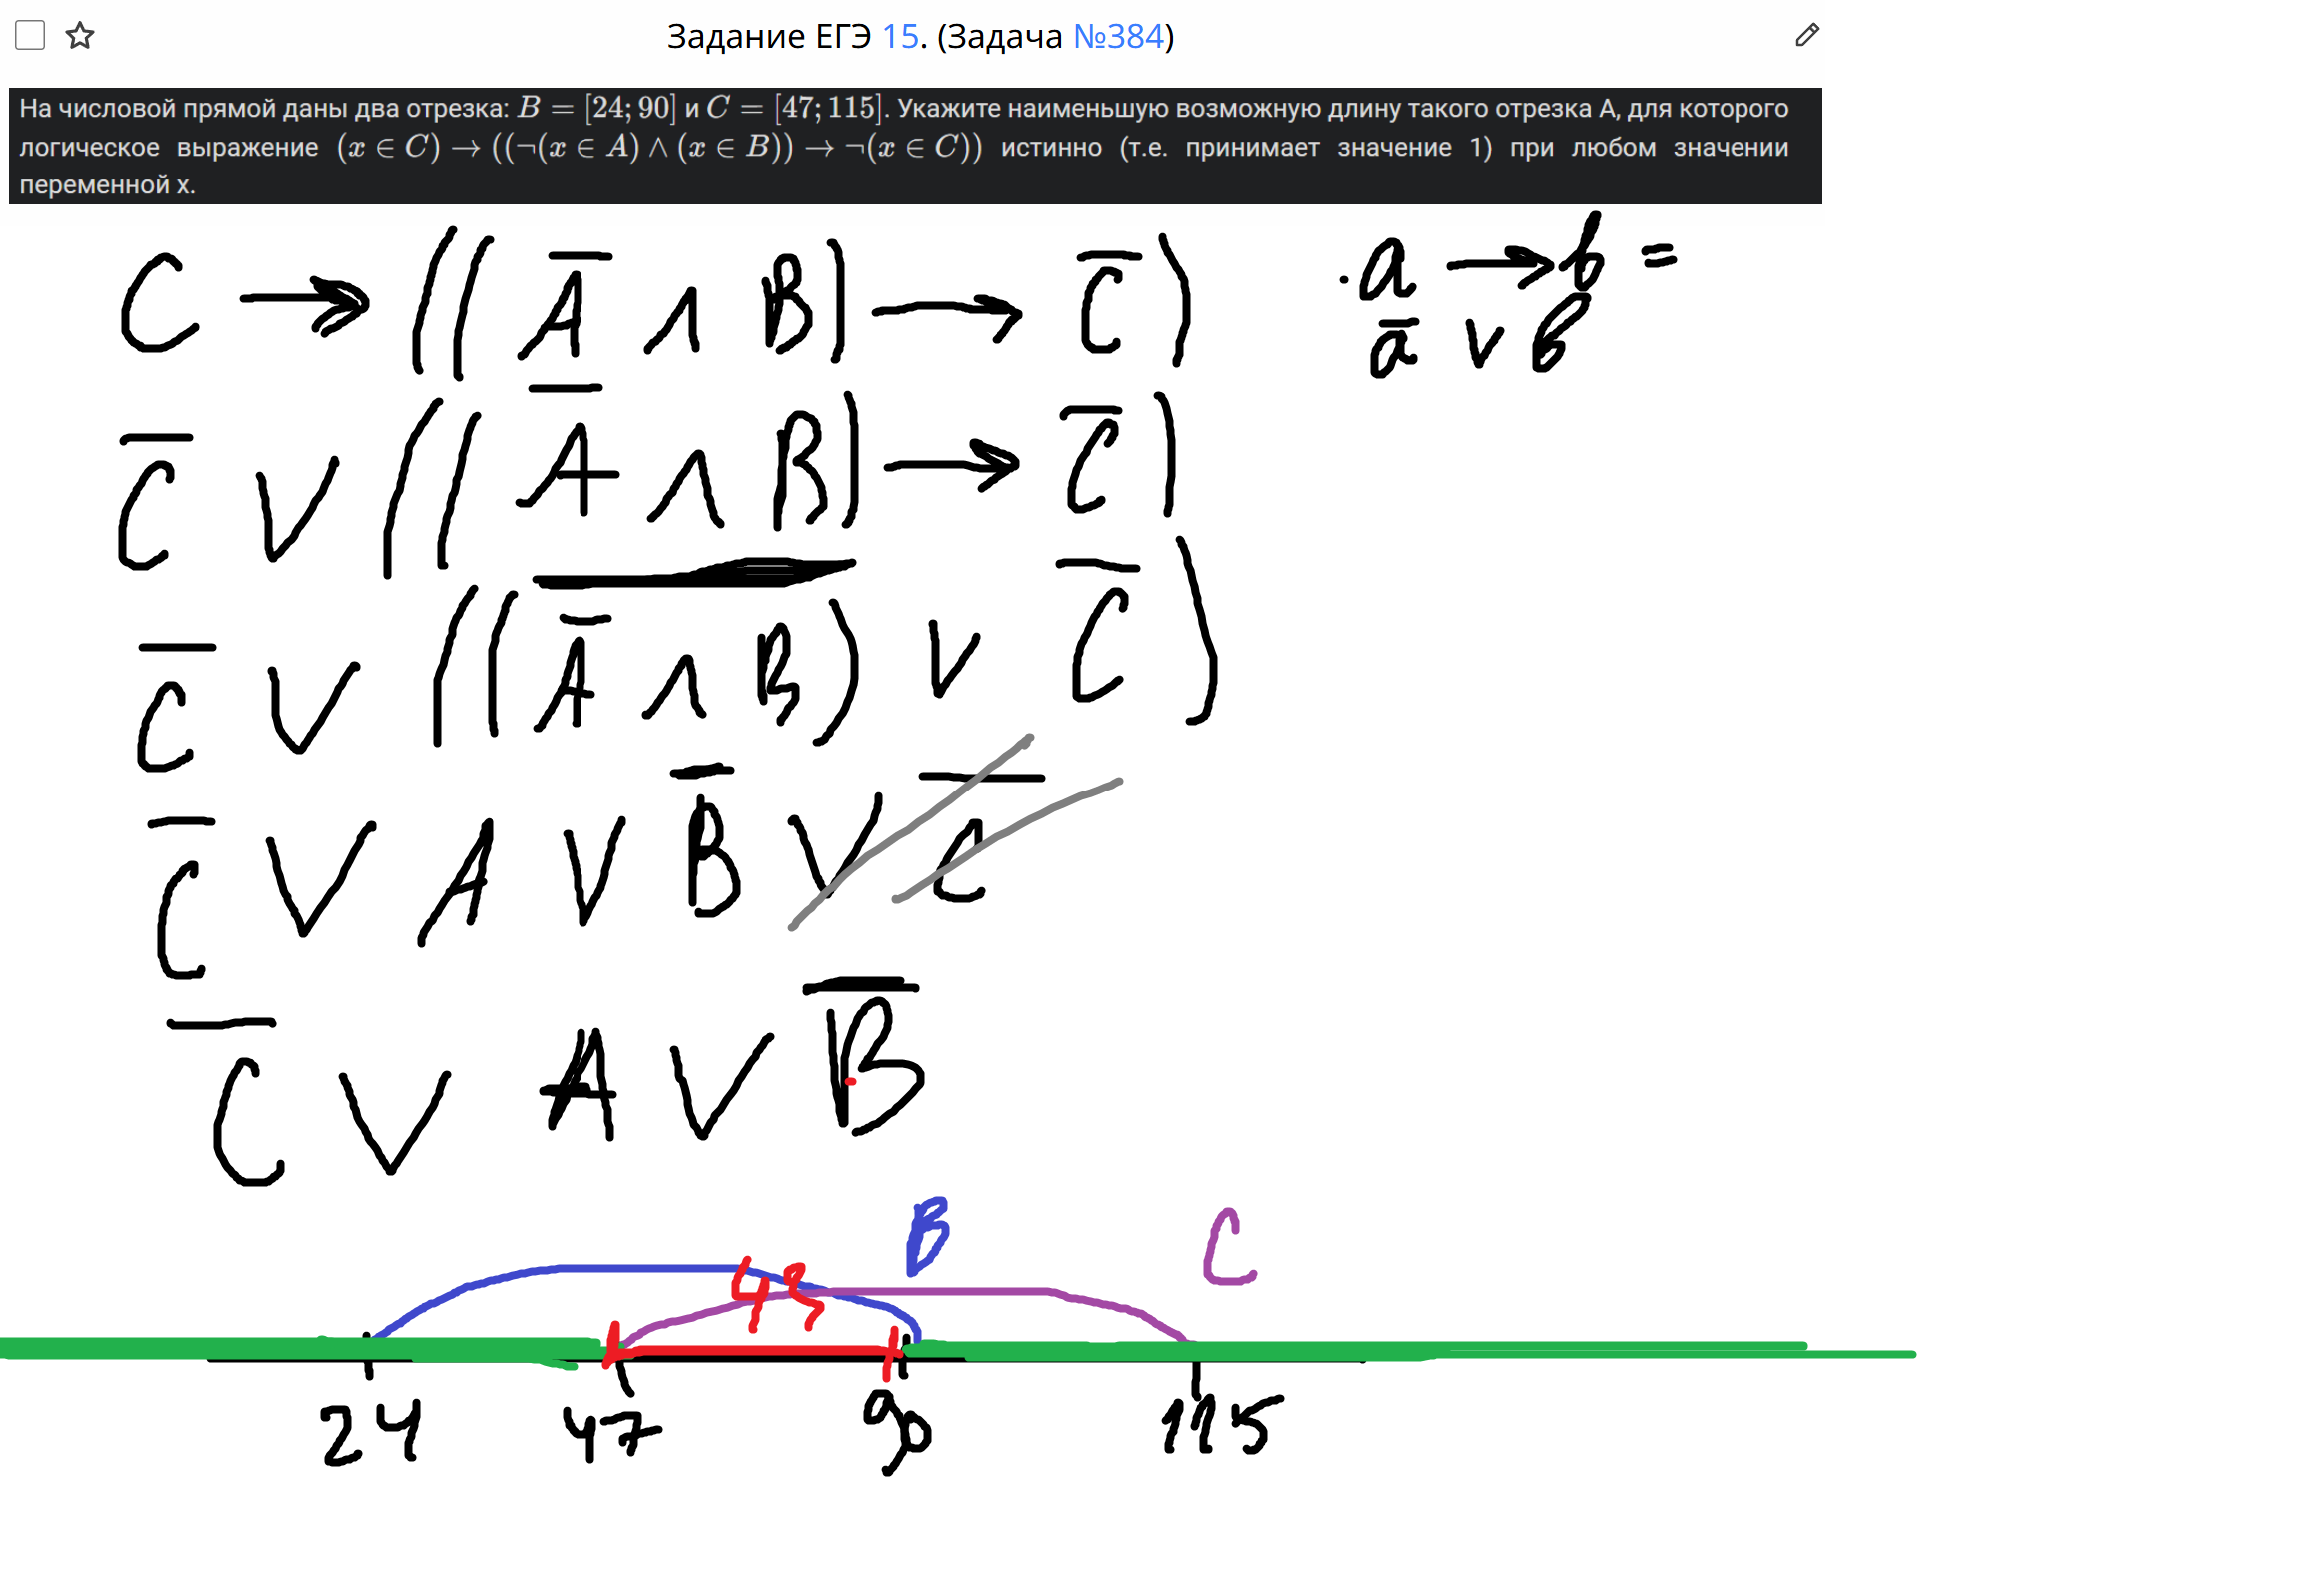 Задание ЕГЭ 15. (Задача №384)
На числовой прямой даны два отрезка: B = [24; 90] и C = [47; 115]. Укажите наименьшую возможную длину такого отрезка А, для которого
логическое выражение (x ∈ C) → ((¬(x ∈ A) ∧ (x ∈ B)) → ¬(x ∈ C)) истинно (т.е. принимает значение 1) при любом значении
переменной х.
C → ((A̅ ∧ B) → C̅)
· a → b =
a̅ ∨ b
C̅ ∨ ((A̅ ∧ B) → C̅)
C̅ ∨ ((A̅ ∧ B)̅ ∨ C̅)
C̅ ∨ A ∨ B̅ ∨ C̅
C̅ ∨ A ∨ B̅
B C
43
24 47 90 115